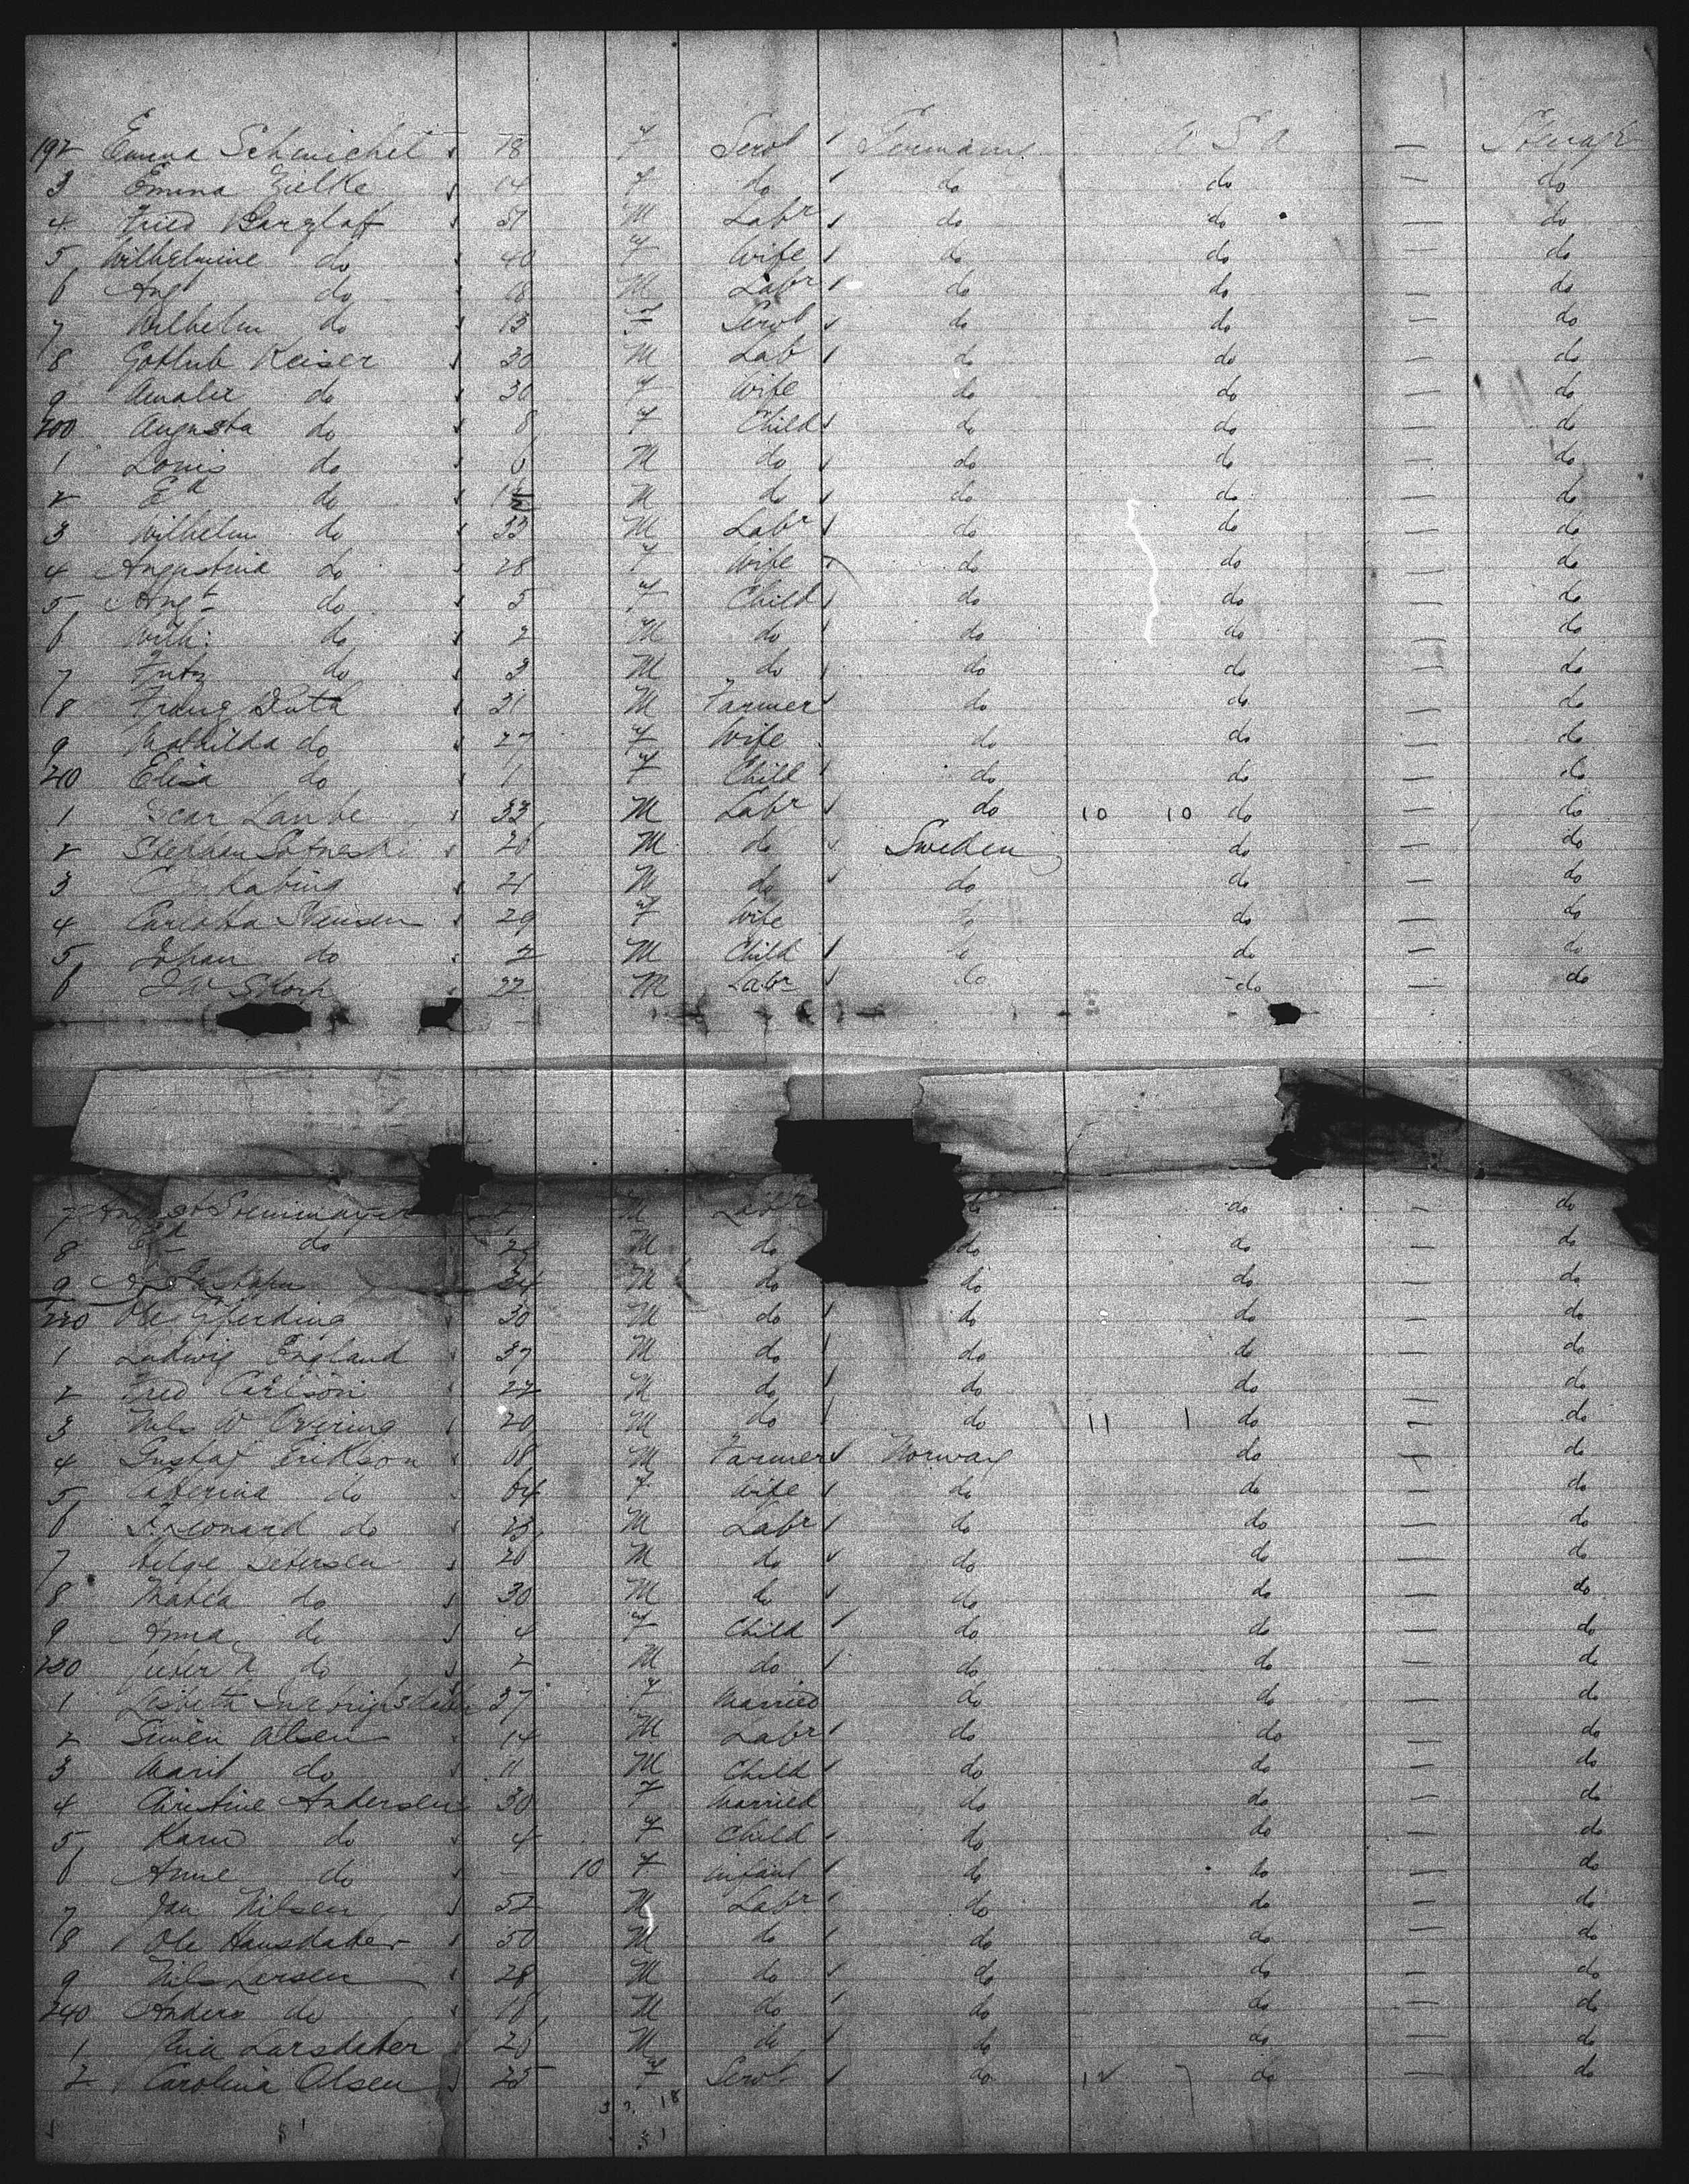 192 Emma Schmichel 18 F Servt Germany U S A — Steerage
3 Emma Zielke 14 F do do do — do
4 Fried Barzlaff 51 M Labr do do — do
5 Wilhelmine do 40 F Wife do do — do
6 Aug do 18 M Labr do do — do
7 Wilhelm do 13 F Servt do do — do
8 Gottlieb Keiser 30 M Lab do do — do
9 Amalie do 30 F Wife do do — do
200 Augusta do 8 F Child do do — do
1 Louis do 6 M do do do — do
2 Ed do M do do do — do
3 Wilhelm do 33 M Labr do do — do
4 Augustina do 28 F Wife do do — do
5 Augt do 5 F Child do do — do
6 Wilh: do 2 M do do do — do
7 Fritz do 3 M do do do — do
8 Franz 31 M Farmer do do — do
9 Mathilda do 27 F Wife do do — do
210 Elisa do 1 F Child do do — do
1 Oscar Lambe 33 M Labr do 10 10 do — do
2 Stephan 26 M do Sweden do — do
3 Kabing 21 M do do do — do
4 Carlotta 29 F Wife do do — do
5 Johan do 2 M Child do do — do
6 22 M Labr do do — do
7 August M Labr do do — do
8 Ed do 29 M do do do — do
9 24 M do do do — do
220 Ole 30 M do do do — do
1 Ludwig England 37 M do do do — do
2 Fred Carlson 22 M do do do — do
3 Nils W Overing 20 M do do 11 1 do — do
4 Gustaf Erikson 68 M Farmer Norway do — do
5 Caterina do 64 F Wife do do — do
6 Leonard do 23 M Labr do do — do
7 Helge Petersen 26 M do do do — do
8 do 30 M do do do — do
9 Anna do 4 F Child do do — do
230 Peter N do 2 M do do do — do
1 Lisbeth 37 F Married do do — do
2 Simen Olsen 14 M Labr do do — do
3 Marit do 11 M Child do do — do
4 Christine Andersen 30 F Married do do — do
5 Karen do 4 F Child do do — do
6 Anne do — 10 F Infant do do — do
7 Jan Nilsen 52 M Labr do do — do
8 Ole Hansdatter 50 M do do do — do
9 Nils Larsen 28 M do do do — do
240 Anders do 18 M do do do — do
1 Larsdatter 20 M do do do — do
2 Carolina Olsen 25 F Servt do 14 7 do — do